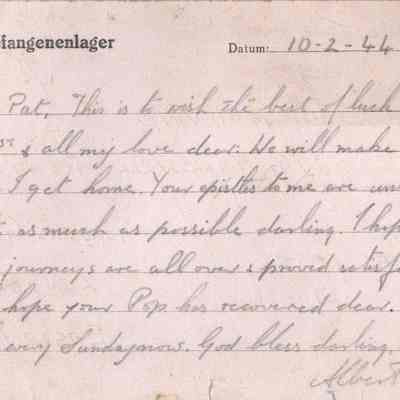 fangenenlager Datum: 10-2-44
Pat, This is to wish the best of luck
st & all my love dear. We will make
I get home. Your epistles to me are
as much as possible darling. I hop
journeys are all over & proved satisf
hope your Pop has recovered dear.
every Sunday now. God bless darling.
Albert